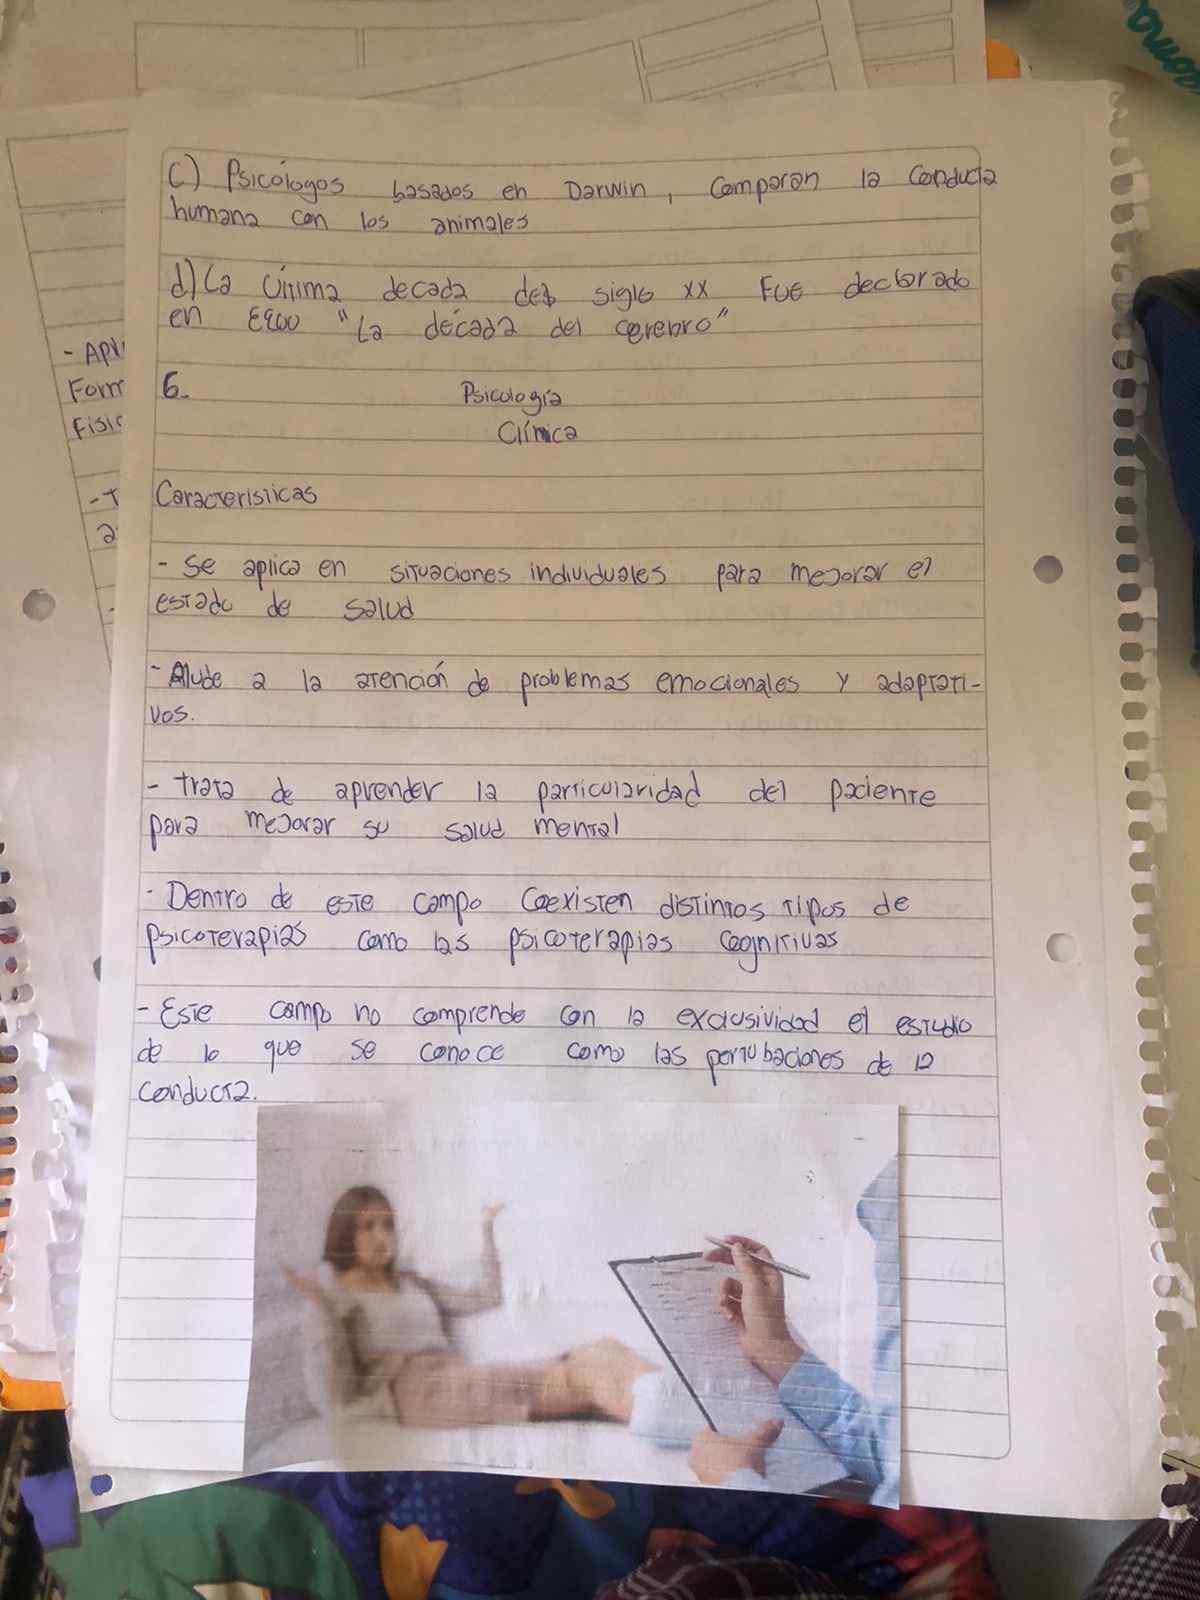 c) Psicólogos basados en Darwin, Comparan la Conducta
humana con los animales
d) La Última decada del siglo XX FUE declarado
en EEUU "La década del cerebro"
- Apli
Form
Fisic
- T
a
6.
Psicología
Clínica
Caracteristicas
- Se aplica en situaciones individuales para mejorar el
estado de salud
- Alude a la atención de problemas emocionales y adaptati-
vos.
- Trata de aprender la particularidad del paciente
para mejorar su salud mental
- Dentro de este campo Coexisten distintos tipos de
psicoterapias como las psicoterapias cognitivas
- Este campo no comprende con la exclusividad el estudio
de lo que se conoce como las pertubaciones de la
conducta.